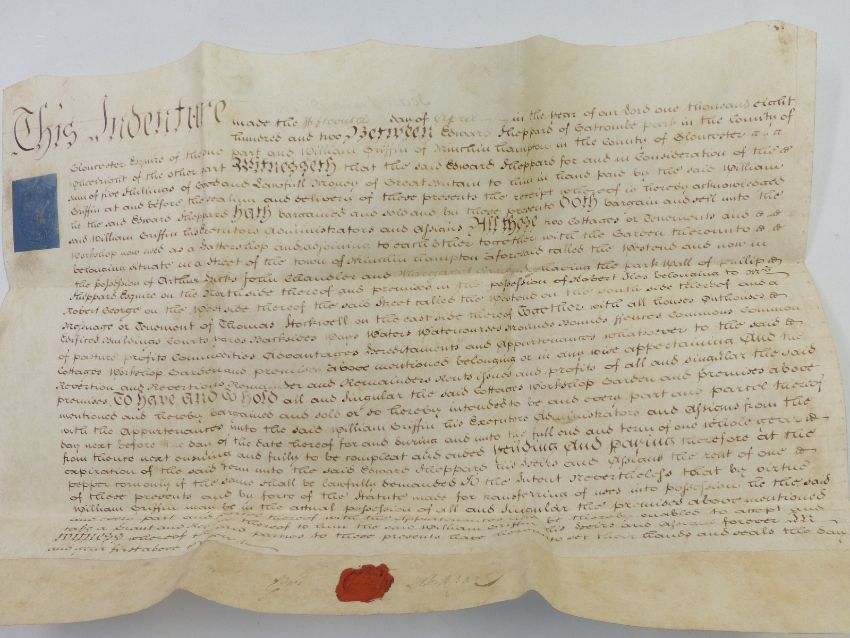 This Indenture made the day of April in the Year of our Lord one thousand eight
hundred and two Between Edward Sheppard of Gatcombe park in the County of
Gloucester Esquire of the one part and William Griffin of Minchin hampton in the County of Gloucester
of the other part Witnesseth that the said Edward Sheppard for and in Consideration of the
sum of five Shillings of Good and Lawfull Money of Great Britain to him in hand paid by the said William
Griffin at and before the sealing and delivery of these presents the receipt whereof is hereby acknowledged
he the said Edward Sheppard hath bargained and sold and by these presents Doth bargain and sell unto the
said William Griffin his Executors Administrators and Assigns All those two Cottages or Tenements and
Workshop now used as a and adjoining to each other together with the Garden thereunto
belonging situate in a Street of the town of Minchin hampton aforesaid called the Westend and now in
the possession of Arthur John Chandler and having the park Wall of philip
Sheppard Esquire on the Northside thereof and premises in the possession of Robert belonging to
Robert George on the Westside thereof the said Street called the Westend on the south side thereof and a
Messuage or Tenement of Thomas Stockwell on the east side thereof Together with all houses Outhouses
Edifices Buildings Courts Yards Backsides Ways Waters Watercourses Mounds Bounds ffences Commons Common
of pasture profits Commodities Advantages Hereditaments and Appurtenances whatsoever to the said
Cottages Workshop Garden and premises above mentioned belonging or in any wise appertaining And the
Reversion and Reversions Remainder and Remainders Rents issues and profits of all and singular the said
premises To have and to hold all and singular the said Cottages Workshop Garden and premises above
mentioned and hereby bargained and sold or so hereby intended to be and every part and parcel thereof
with the Appurtenances unto the said William Griffin his Executors Administrators and Assigns from the
day next before the day of the date hereof for and during and unto the full end and term of one whole year
from thence next ensuing and fully to be compleat and ended Yielding And paying therefore at the
expiration of the said term unto the said Edward Sheppard his Heirs and Assigns the rent of one
pepper corn only if the same shall be lawfully demanded To the Intent Nevertheless that by virtue
of these presents and by force of the Statute made for transferring of uses into possession he the said
William Griffin may be in the actual possession of all and Singular the premises above mentioned
and every part thereof with the Appurtenances and be thereby enabled to accept and
take a Grant and thereof to him the said William Griffin his Heirs and Assigns forever In
Witness whereof the parties to these presents have hereunto set their hands and seals the day
and year first above